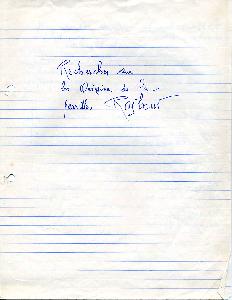 Recherches sur
les Origines de la
famille